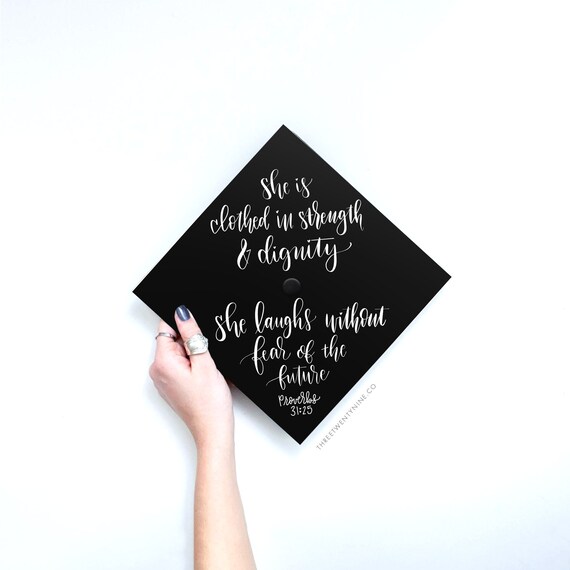 she is
clothed in strength
& dignity
she laughs without
fear of the
future
Proverbs
31:25
THREETWENTYNINE.CO